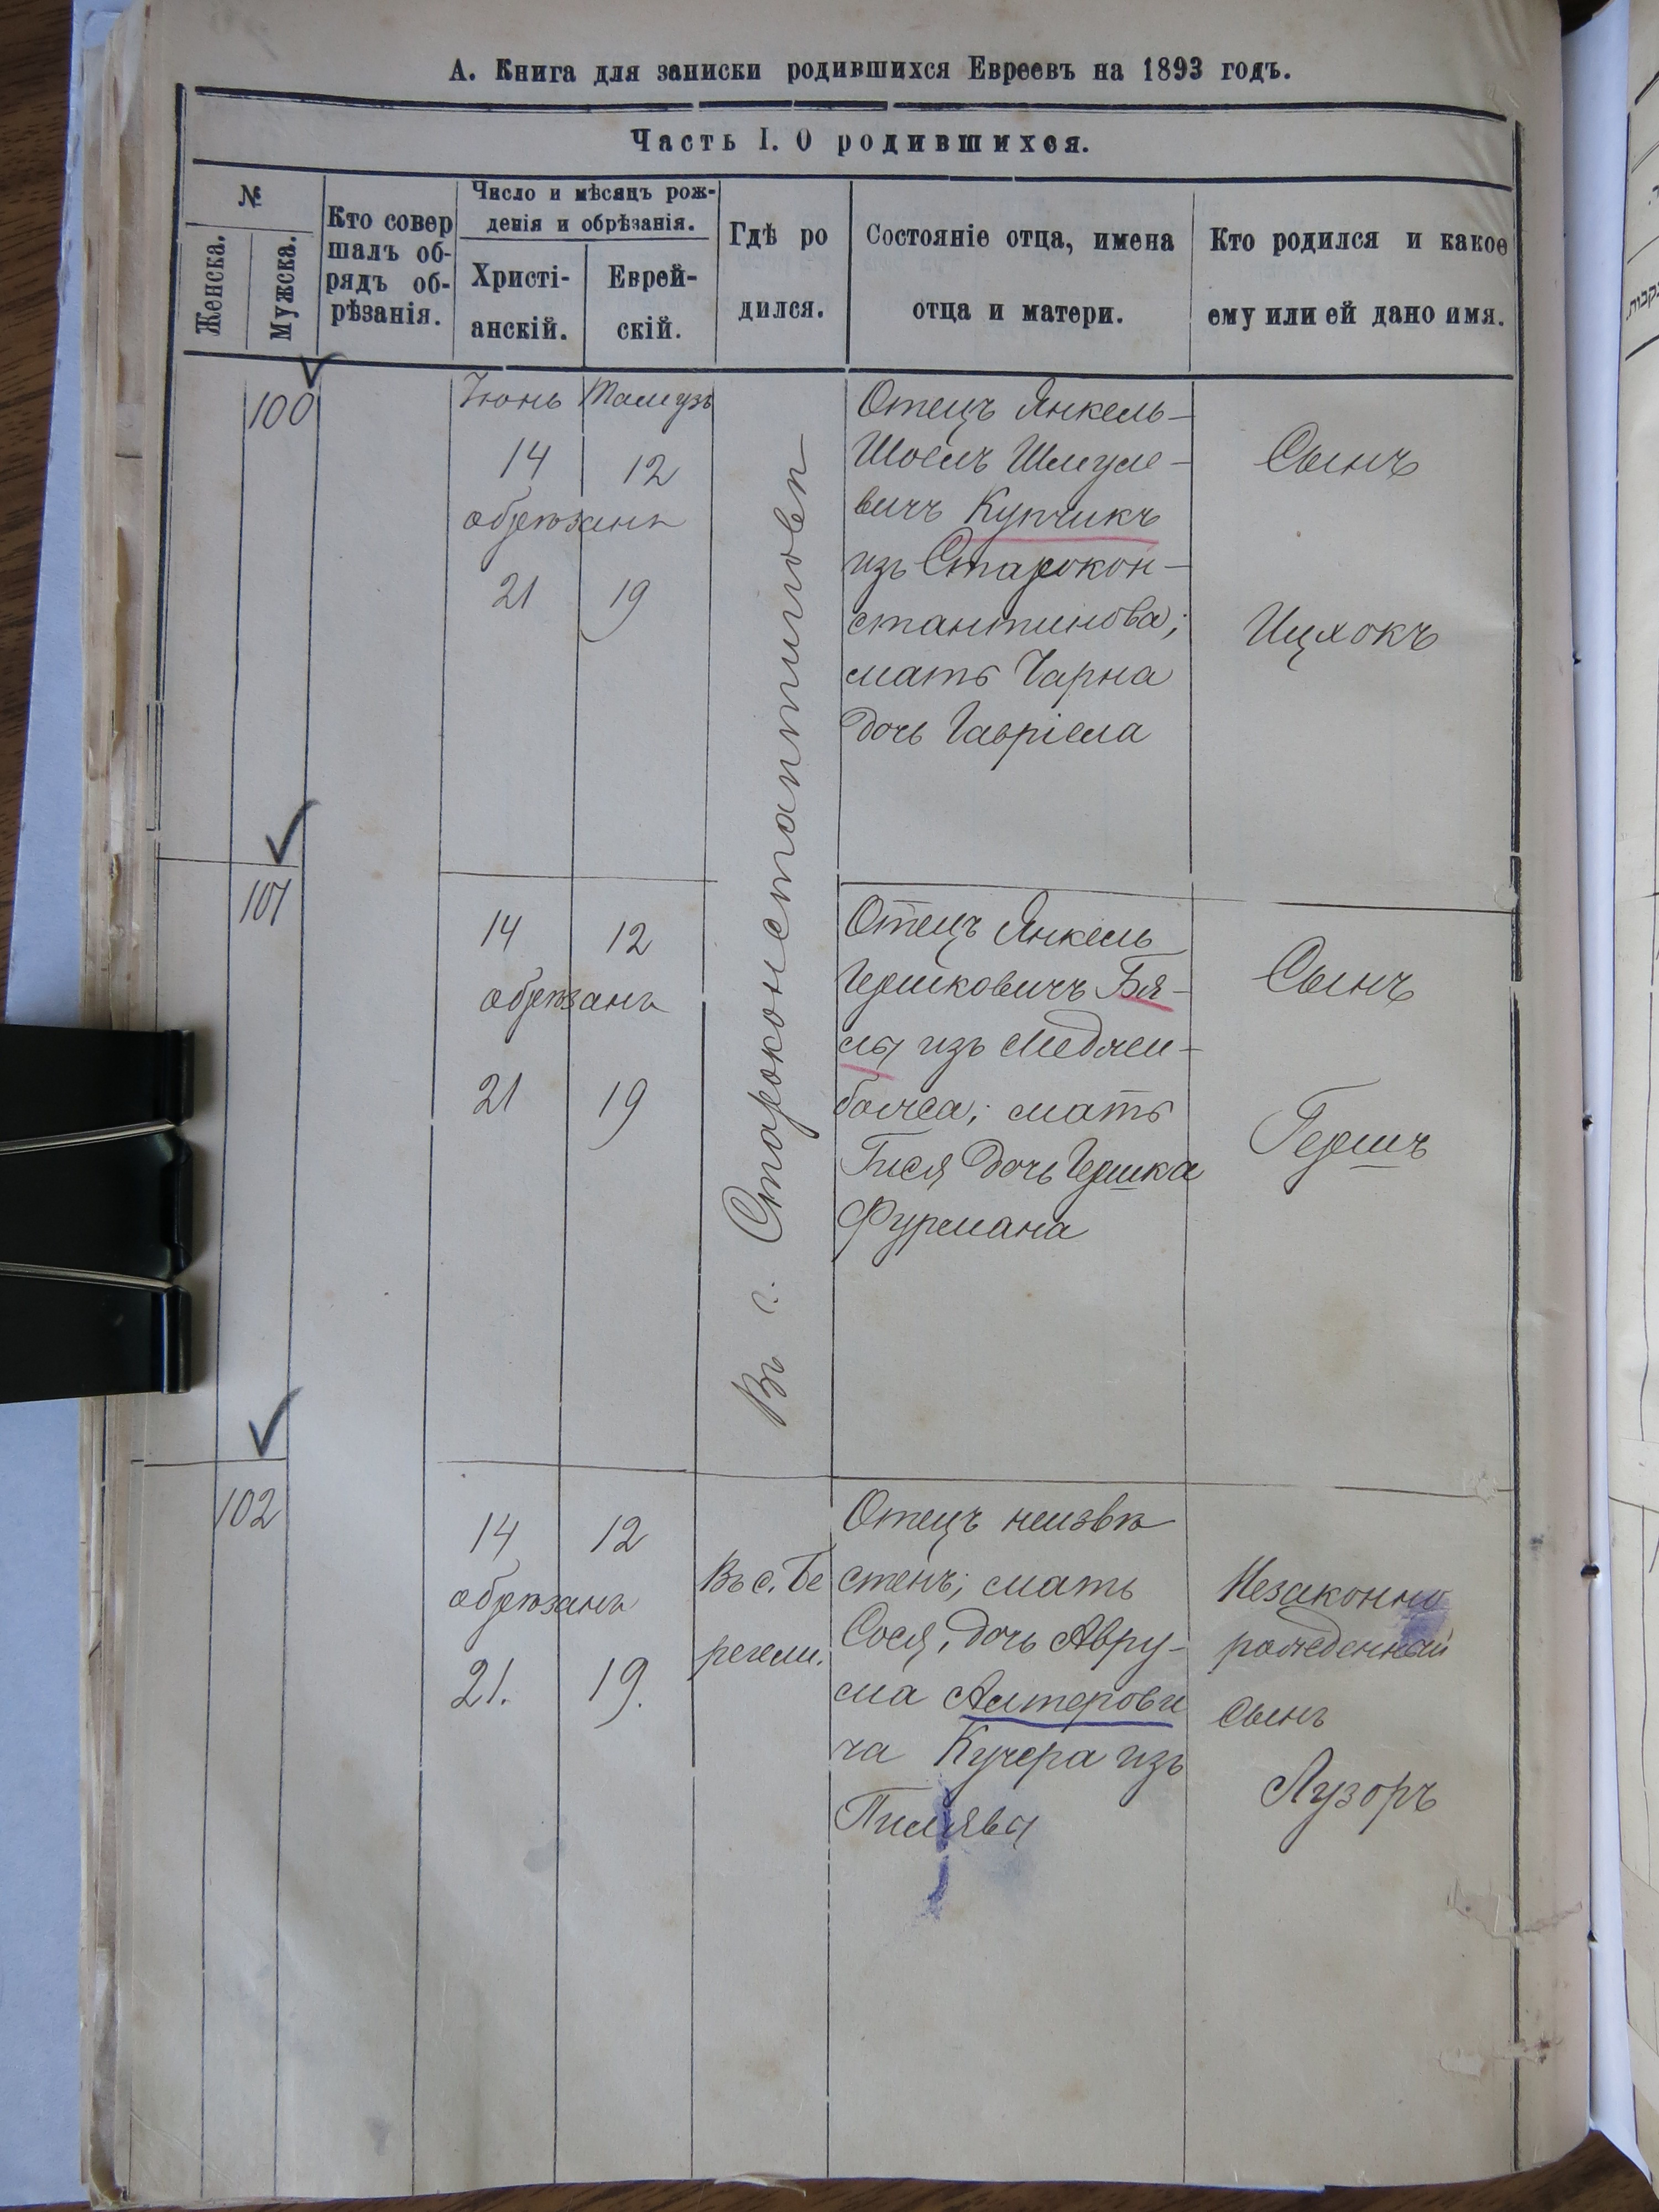 А. Книга для записки родившихся Евреевъ на 1893 годъ.
Часть I. О родившихся.
№
Женска.
Мужска.
Кто совер
шалъ об-
рядъ об-
рѣзанія.
Число и мѣсяцъ рож-
денія и обрѣзанія.
Христі-
анскій.
Еврей-
скій.
Гдѣ ро
дился.
Состояніе отца, имена
отца и матери.
Кто родился и какое
ему или ей дано имя.
100
Іюнь Тамузъ
14 12
обрѣзанъ
21 19
Въ г. Староконстантиновѣ
Отецъ Янкель-
Шоелъ Шмуле-
вичъ Купчикъ
изъ Старокон-
стантинова;
мать Чарна
дочь Гавріела
Сынъ
Ицхокъ
101
14 12
обрѣзанъ
21 19
Отецъ Янкель
Гершковичъ Бя-
лы изъ Меджи-
божа; мать
Гися дочь Гершка
Фурмана
Сынъ
Гершъ
102
14 12
обрѣзанъ
21. 19.
Въ с. Бе
регели.
Отецъ неизвѣ
стенъ; мать
Сося, дочь Авру-
ма Алтерови
ча Кучера изъ
Пилявы
Незаконно
рожденный
сынъ
Лузоръ